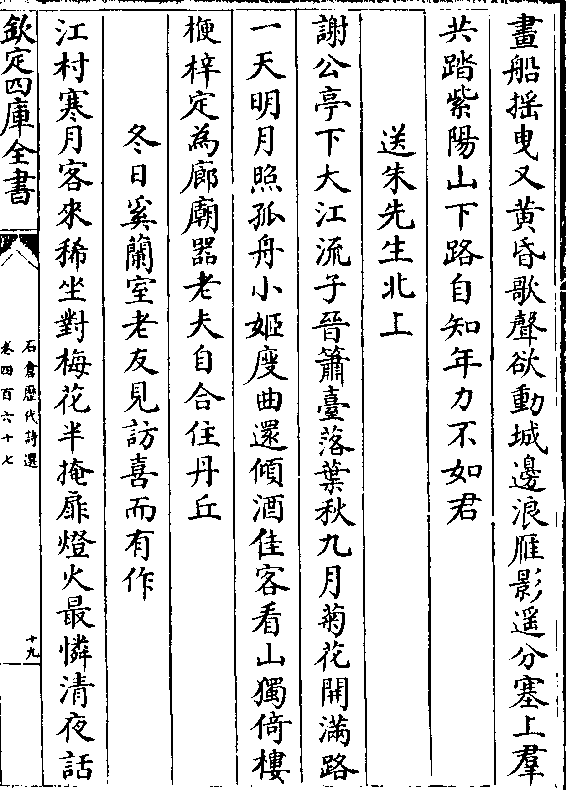 畫船揺曳又黄昏歌聲欲動城邊浪雁影遥分塞上羣
共踏紫陽山下路自知年力不如君
送朱先生北上
謝公亭下大江流子晉簫臺落葉秋九月菊花開滿路
一天明月照孤舟小姬度曲還傾酒佳客看山獨倚樓
楩梓定為廊廟器老夫自合住丹丘
冬日奚蘭室老友見訪喜而有作
江村寒月客來稀坐對梅花半掩扉燈火最憐清夜話
欽定四庫全書
石倉歷代詩選
卷四百六十七
十九